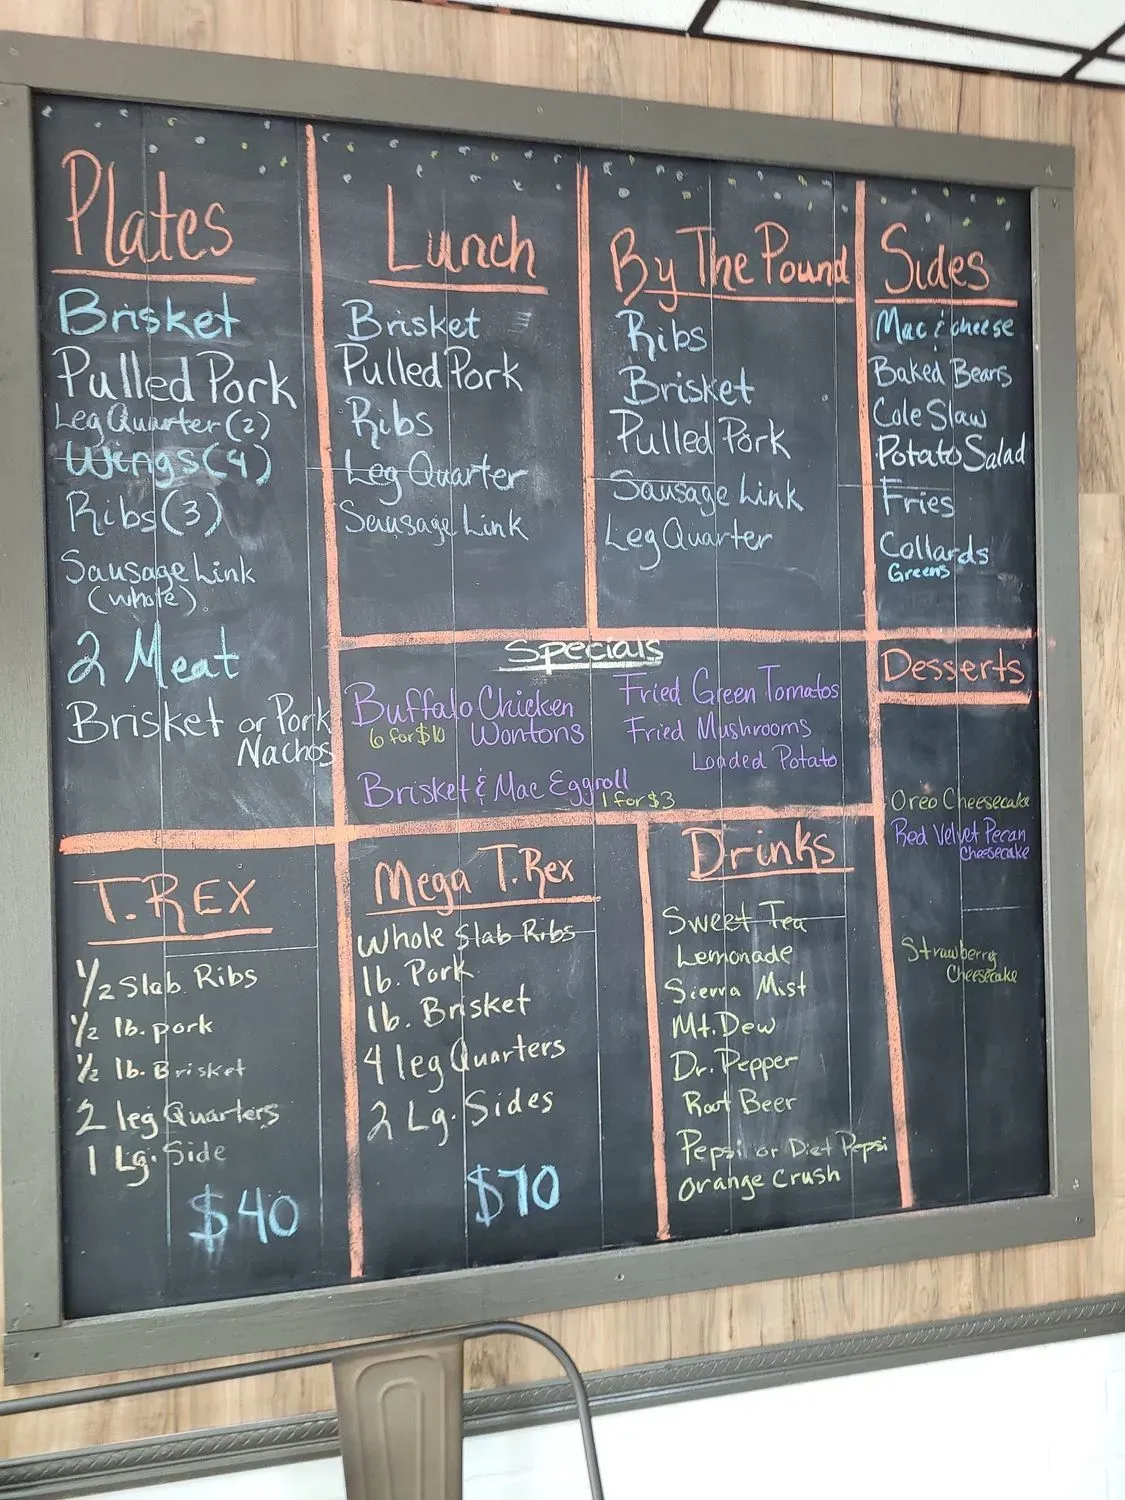 Plates
Brisket
Pulled Pork
Leg Quarter (2)
Wings (4)
Ribs (3)
Sausage Link
(whole)
2 Meat
Brisket or Pork
Nachos
Lunch
Brisket
Pulled Pork
Ribs
Leg Quarter
Sausage Link
By The Pound
Ribs
Brisket
Pulled Pork
Sausage Link
Leg Quarter
Sides
Mac & cheese
Baked Beans
Cole Slaw
Potato Salad
Fries
Collards
Greens
Specials
Buffalo Chicken
6 for $10 Wontons
Brisket & Mac Eggroll
1 for $3
Fried Green Tomatos
Fried Mushrooms
Loaded Potato
Desserts
Oreo Cheesecake
Red Velvet Pecan
Cheesecake
Strawberry
Cheesecake
T.REX
1/2 Slab Ribs
1/2 lb. pork
1/2 lb. Brisket
2 leg Quarters
1 Lg. Side
$40
Mega T.Rex
Whole Slab Ribs
lb. Pork
lb. Brisket
4 leg Quarters
2 Lg. Sides
$70
Drinks
Sweet Tea
Lemonade
Sierra Mist
Mt. Dew
Dr. Pepper
Root Beer
Pepsi or Diet Pepsi
Orange Crush